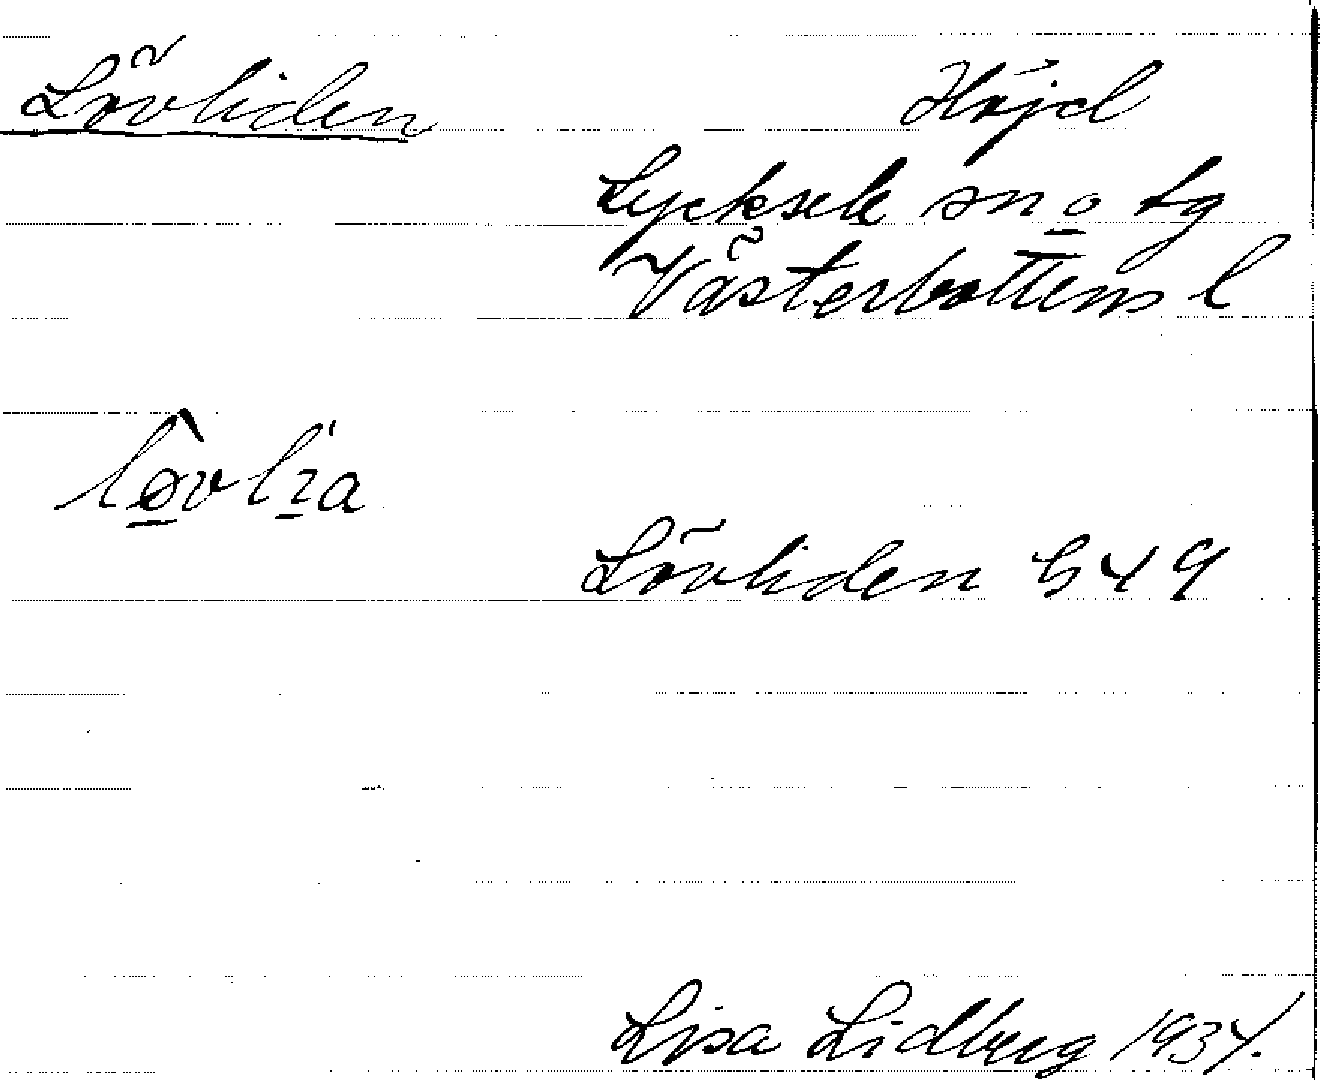 Lövliden
Höjd
Lycksele sn o tg
Västerbottens l
Lövliden G 49
Lisa Lidberg 1934.